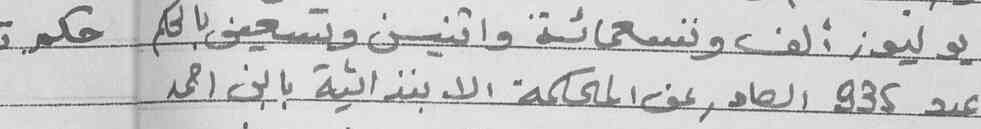 يوليوز ألف وتسعمائة واثنين وتسعين بالحكم حكم
عدد 935 الصادر عن المحكمة الابتدائية بابن احمد